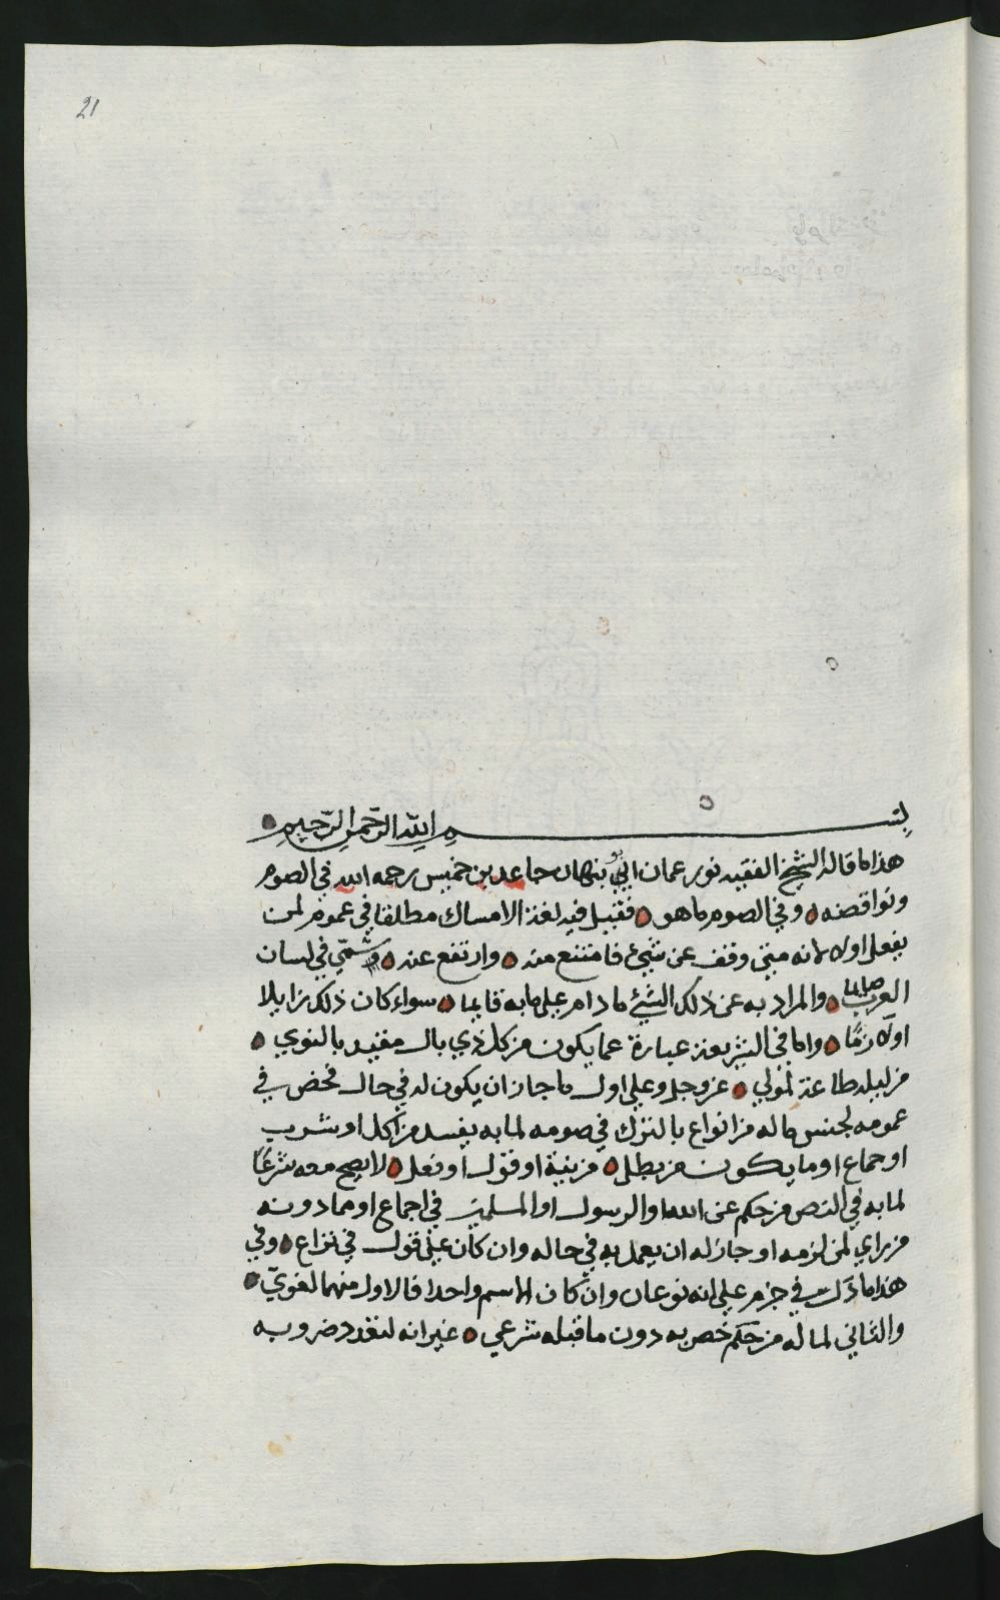 21
بسم الله الرحمن الرحيم
هذا ما قاله الشيخ الفقيه نور عمان ابي نبهان جاعد بن خميس رحمه الله في الصوم
ونواقضه وفي الصوم ما هو فقيل فيه لغة الامساك مطلقا في عمومه لمن
يفعله اولا لانه متى وقف عن شيئ فامتنع منه وارتفع عنه وسمّي في لسان
العرب صايما والمراد به عن ذلك الشيئ ما دام على ما به قايما سواء كان ذلك زايلا
او لازما واما في الشريعة عبارة عما يكون من كل ذي بال مقيد بالنوي
من ليله طاعة لمولي عز وجل وعلى اول ما جاز ان يكون له في حال فحض في
عمومه لجنس ماله من انواع بالترك في صومه لما به يفسد من اكل او شرب
او جماع او ما يكون من مبطل من نية او قول او فعل لا يصح معه شرعا
لما به في النص من حكم عن الله او الرسول او المسلمين في اجماع او مما دونه
من راي لمن لزمه او جاز له ان يعمل به في حاله وان كان على قول في نزاع وفي
هذا ما دل في جزم على انه نوعان وان كان الاسم واحدا فالاول منهما لغويّ
والثاني لما له من حكم خص به دون ما قبله شرعي غير انه لتعدد ضروبه